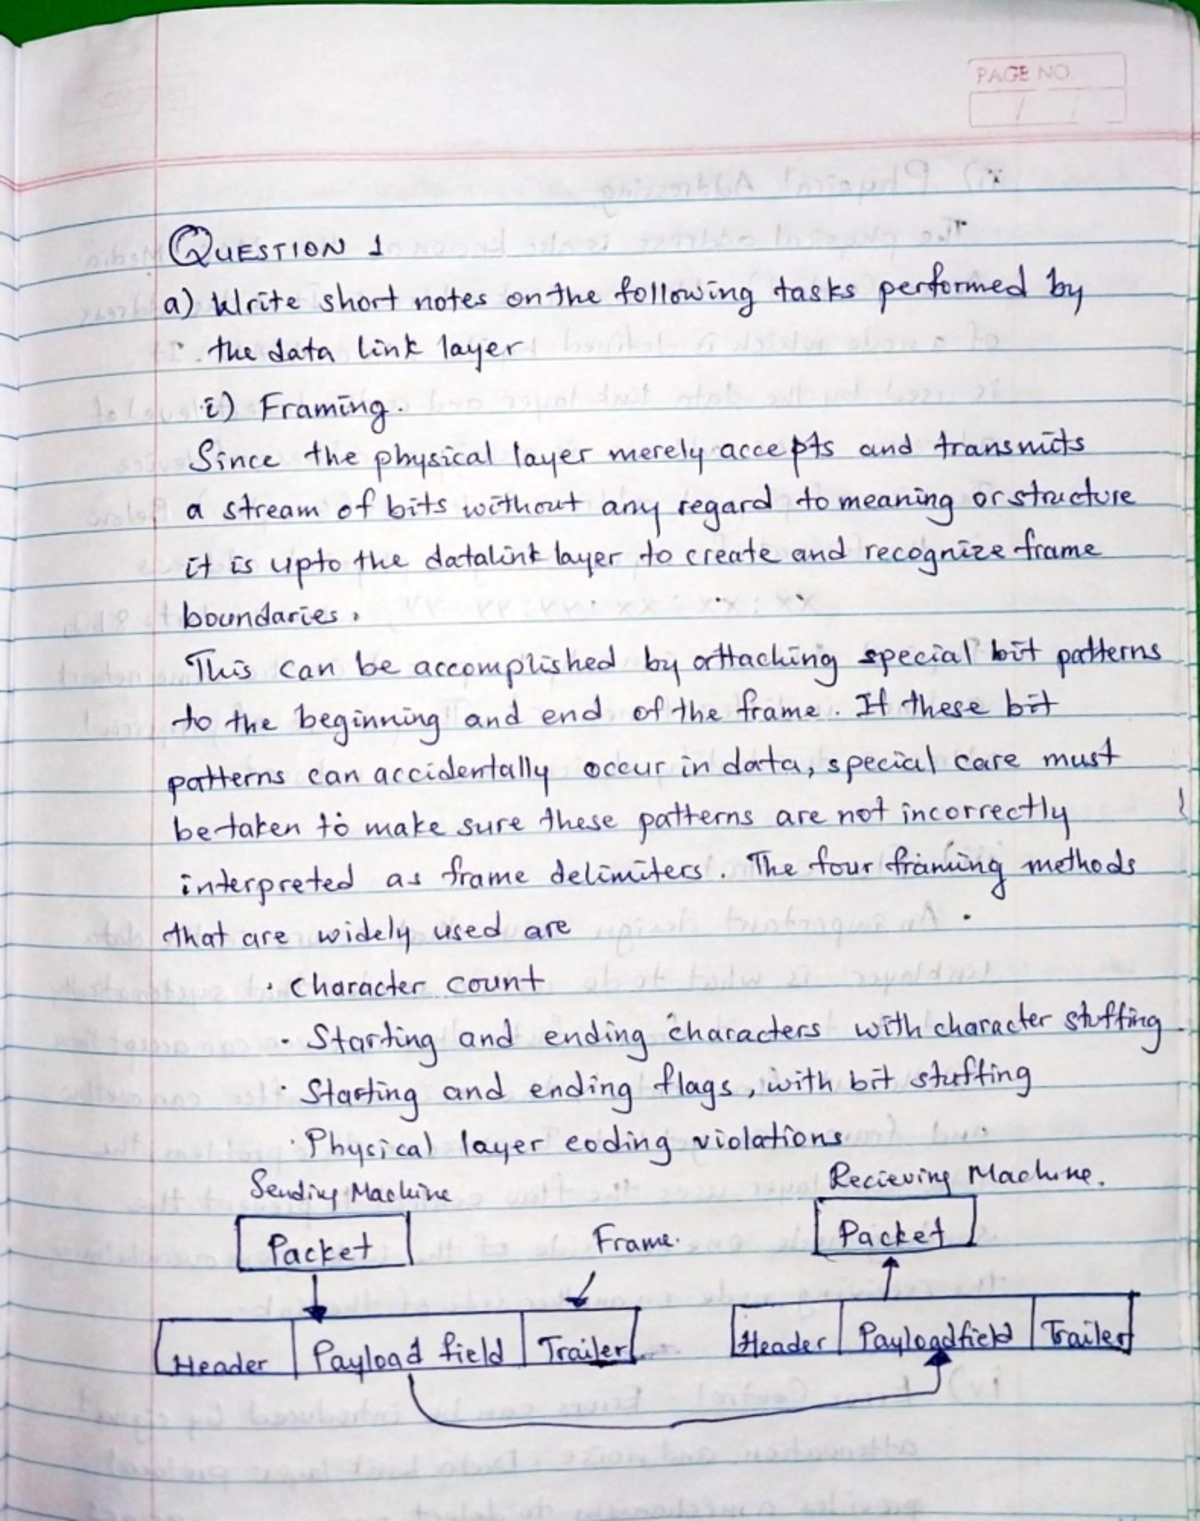 PAGE NO
QUESTION 1
a) Write short notes on the following tasks performed by
the data link layer
i) Framing.
Since the physical layer merely accepts and transmits
a stream of bits without any regard to meaning or structure
it is upto the datalink layer to create and recognize frame
boundaries.
This can be accomplished by attaching special bit patterns
to the beginning and end of the frame. If these bit
patterns can accidentally occur in data, special care must
be taken to make sure these patterns are not incorrectly
interpreted as frame delimiters. The four framing methods
that are widely used are
· Character count
· Starting and ending characters with character stuffing
· Starting and ending flags, with bit stuffing
· Physical layer coding violations
Sending Machine
Recieving Machine.
Packet
Frame.
Packet
Header Payload field Trailer
Header Payload field Trailer